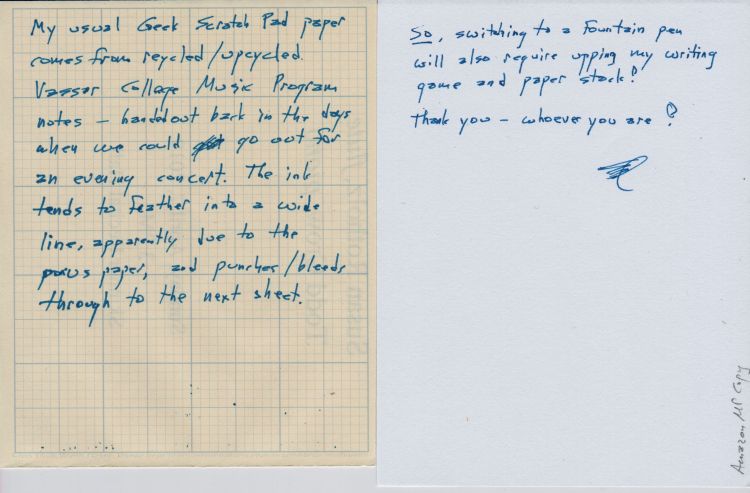 My usual Geek Scratch Pad paper
comes from recycled/upcycled
Vassar College Music Program
notes – handed out back in the days
when we could go out for
an evening concert. The ink
tends to feather into a wide
line, apparently due to the
porus paper, and punches/bleeds
through to the next sheet.
So, switching to a fountain pen
will also require upping my writing
game and paper stack!
Thank you – whoever you are!
Amazon MP Copy